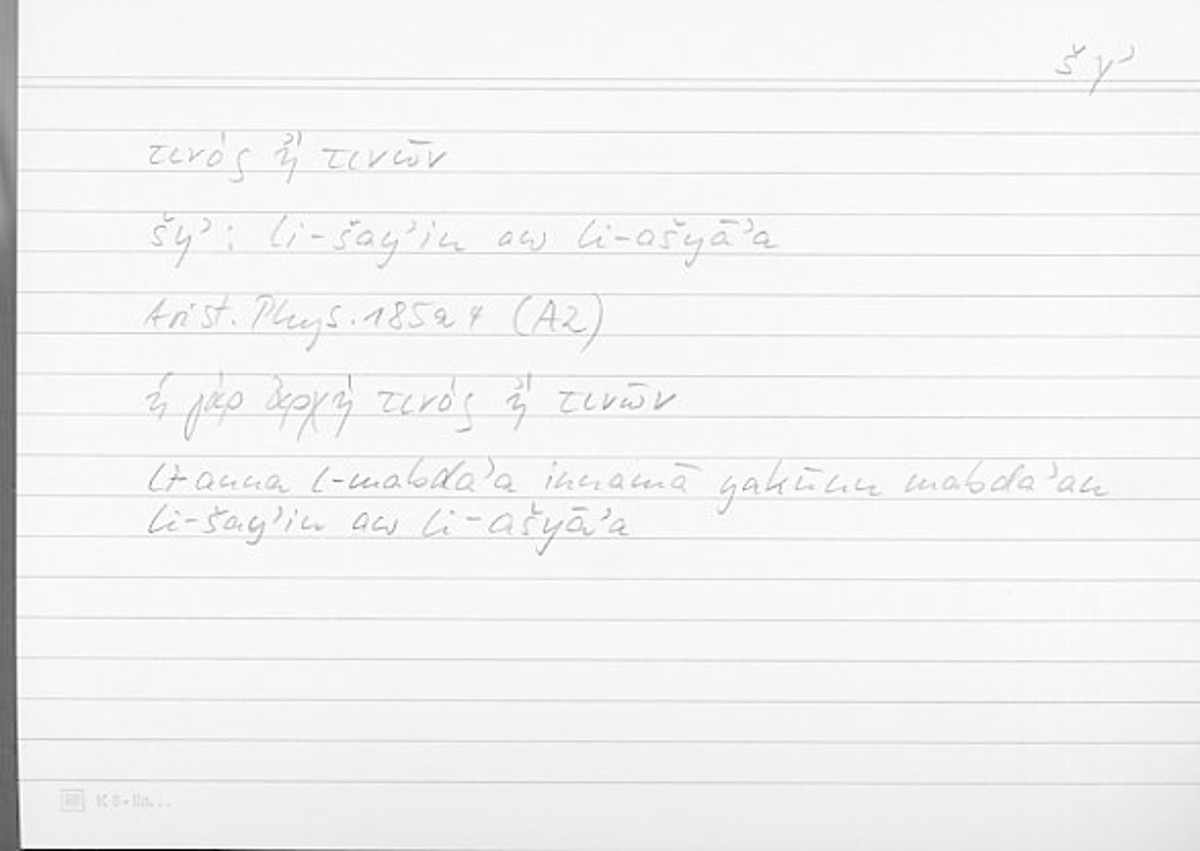 šyʾ
τινός ἢ τινῶν
šyʾ: li-šayʾin aw li-ašyāʾa
Arist. Phys. 185a4 (A2)
ἡ γὰρ ἀρχὴ τινός ἢ τινῶν
li-anna l-mabdaʾa innamā yakūnu mabdaʾan
li-šayʾin aw li-ašyāʾa